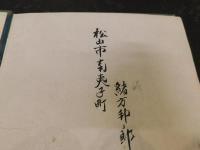 松山市南夷子町
緒方邦郎